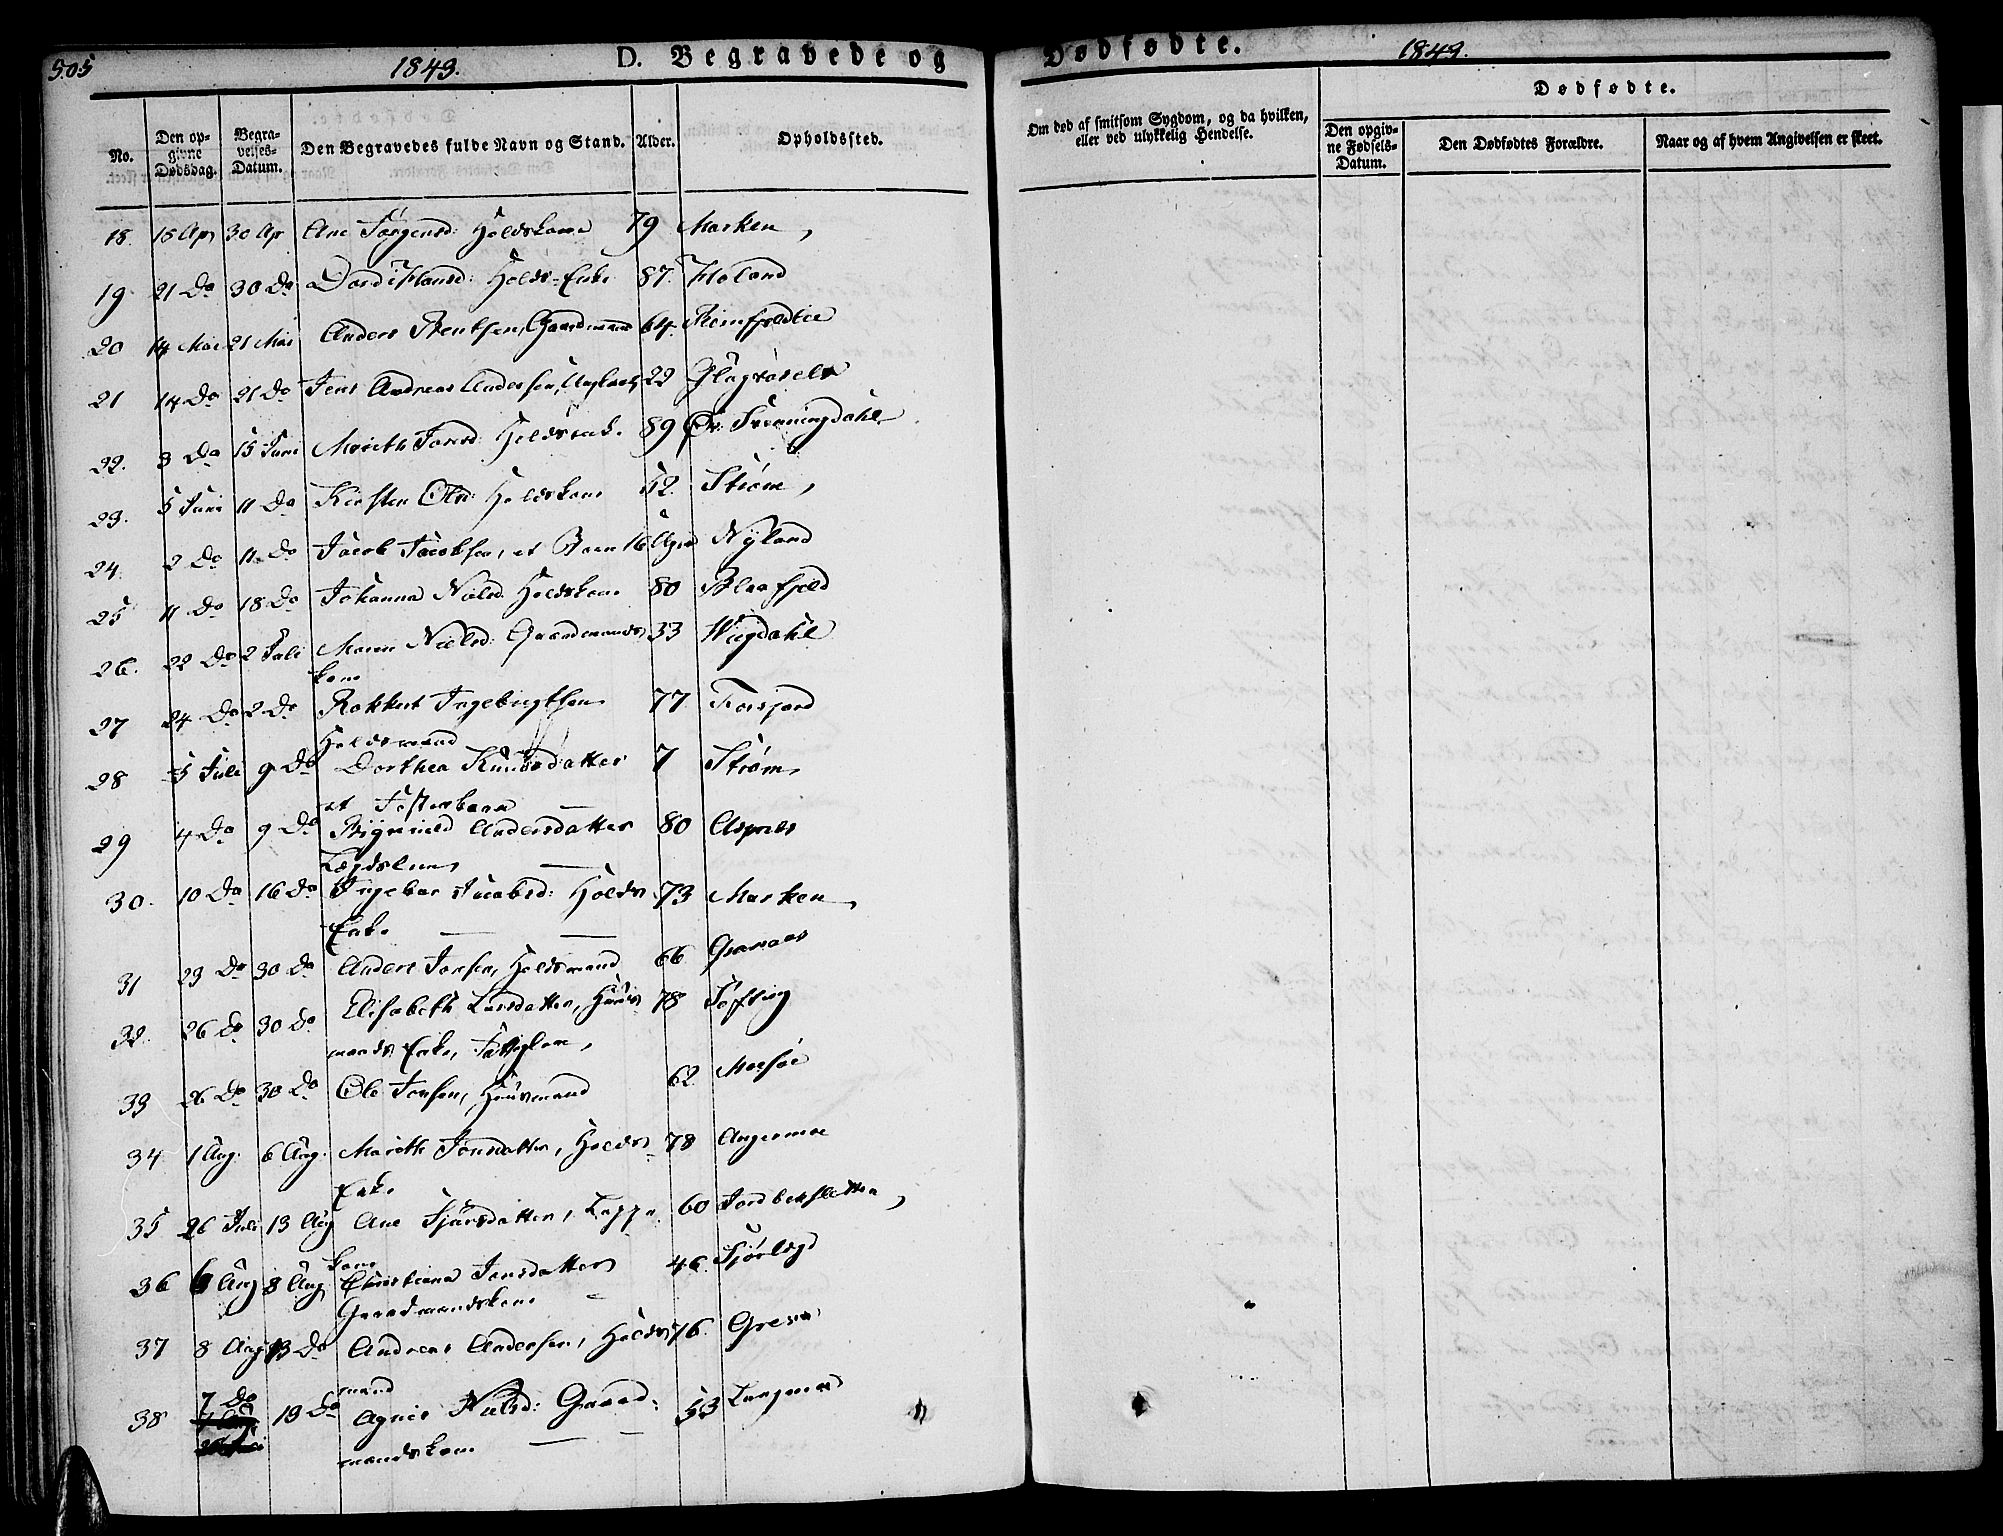 505
1843. D. Begravede og Dødfødte. 1843.
No. Den opgivne Dødsdag. Begravelses-Datum. Den Begravedes fulde Navn og Stand. Alder. Opholdssted. Om død af smitsom Sygdom, og da hvilken, eller ved ulykkelig Hendelse. Dødfødte.
Den opgivne Fødsels-Datum. Den Dødfødtes Forældre. Naar og af hvem Angivelsen er skeet.
18. 18 Apr 30 Apr Ane Jørgensd: Holdskone 79 Marken
19 21 Do 30 Do Dordi Hansd: Holds-Enke 87. Holand
20 14 Mai 21 Mai Anders Bentsen, Gaardmand 64.
21 14 Do 21 Do Jens Andreas Andersen, Ungkarl 22
22. 3 Do 15 Juni Marith Jonsd: Holdsenke 89 Øv: Svenningdahl
23. 5 Juni 11 Do Kirsten Olsd: Holdskone 52. Strøm
24. 2 Do 11 Do Jacob Jacobsen, et Barn 16 Uger Nyland
25 11 Do 18 Do Johanna Nielsd. Holdskone 80 Blaafjeld
26. 22 Do 2 Juli Maren Nielsd: Gaardmands 33 Wigdahl
kone
27 24 Do 2 Do Rokkert Ingebrigtsen 77 Forsjord
Holdsmand
28 5 Juli 9 Do Dorthea Knudsdatter 7 Strøm
et Fosterbarn
29 4 Do 9 Do Andersdatter 80 Aspnes
Lægdslem
30. 10 Do 16 Do Ingebor Jacobsd: Holds 73 Marken
Enke
31 23 Do 30 Do Anders Jonsen, Holdsmand 66 Granaas
32. 26 Do 30 Do Elisabeth Larsdatter, Huus 78 Tofting
mands Enke, Fattiglem
33 26 Do 30 Do Ole Jonsen, Huusmand 62. Mosjøe
34. 1 Aug. 6 Aug. Marith Jonsdatter, Holds 78 Angermoe
Enke
35 26 Juli 13 Aug Ane Sjursdatter, Lappe 60
kone
36 6 Aug 8 Aug Christiana Jonsdatter 46.
Gaardmandskone
37 8 Aug 13 Do Andreas Andersen, Holds 76.
mand
38 7 Do 19 Do Agnis Nielsd: Gaard- 53
mandskone